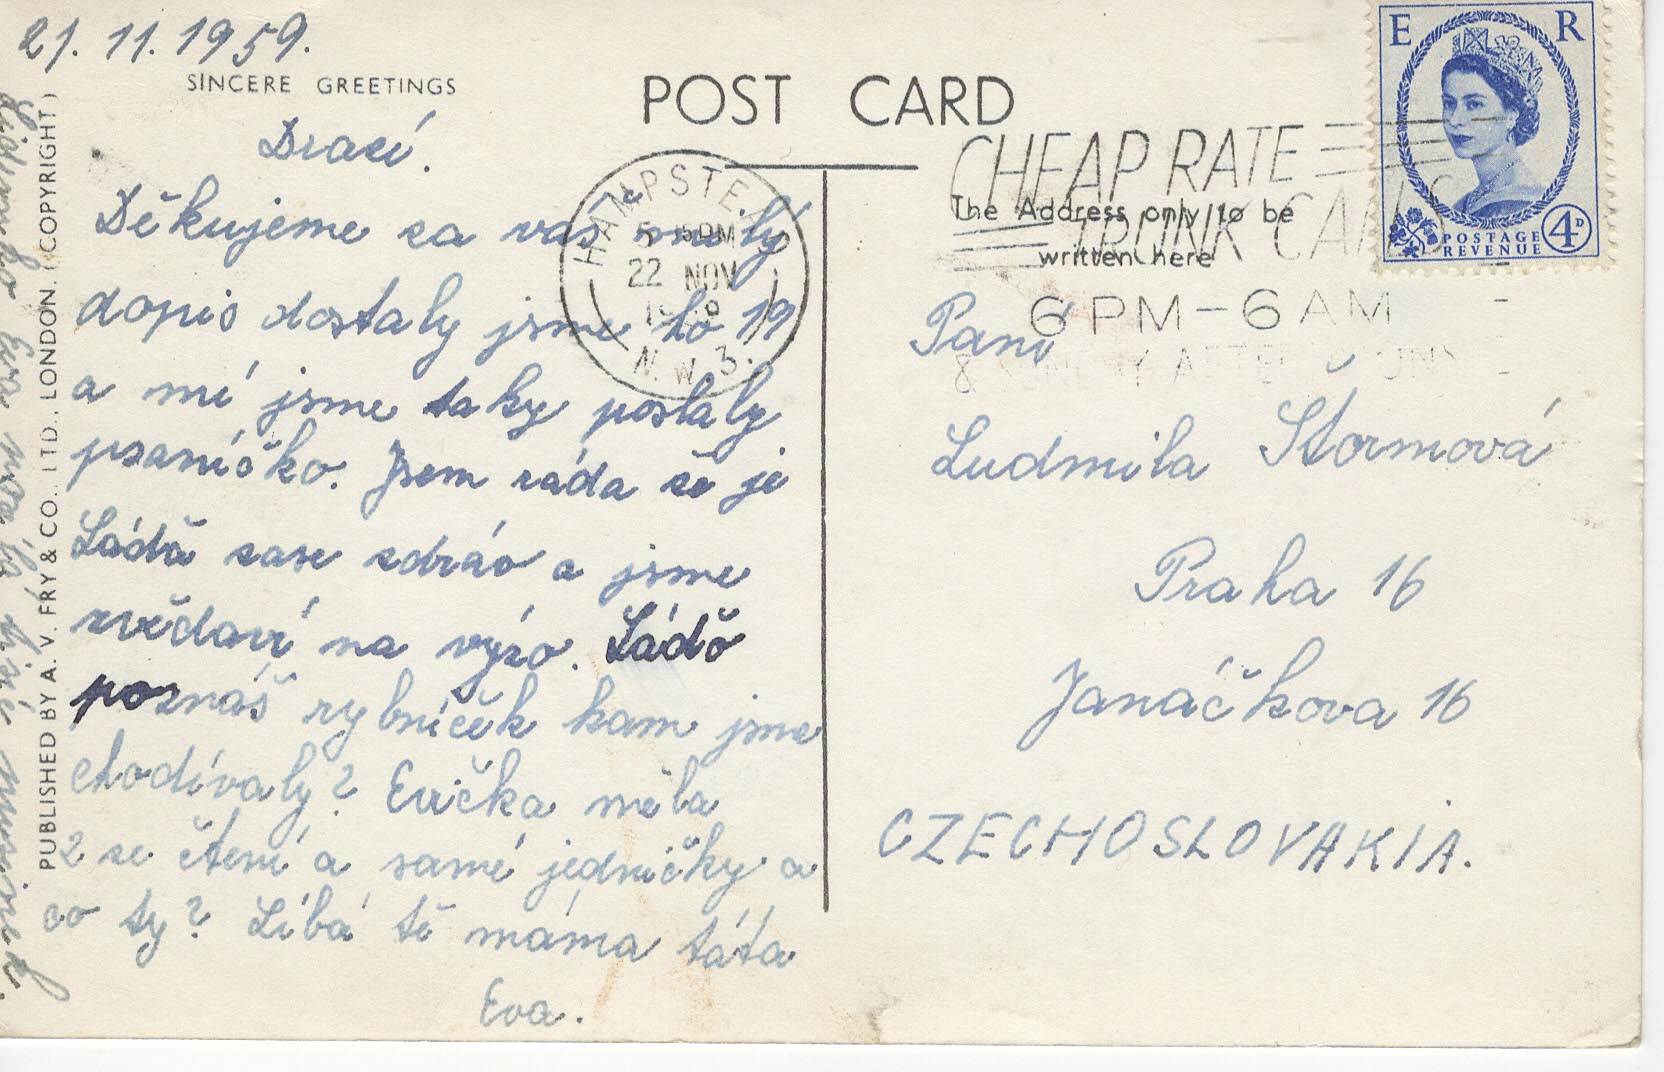 21. 11. 1959.
SINCERE GREETINGS
POST CARD
Drazí.
Děkujeme za váš milý
dopis dostaly jsme ho 19
a mi jsme taky poslaly
psaníčko. Jsem ráda že je
Láďa zase zdráv a jsme
zvědaví na výzo. Láďo
poznáš rybníček kam jsme
chodívaly? Evička měla
2 ze čtení a samé jedničky a
co ty? Líbá tě máma táta
Eva.
PUBLISHED BY A. V. FRY & CO., LTD., LONDON. (COPYRIGHT)
HAMPSTEAD
22 NOV
N.W.3.
CHEAP RATE
TRUNK CALLS
6 PM - 6 AM
E R
POSTAGE
REVENUE
4D
The Address only to be
written here
Paní
Ludmila Štormová
Praha 16
Janáčkova 16
CZECHOSLOVAKIA.